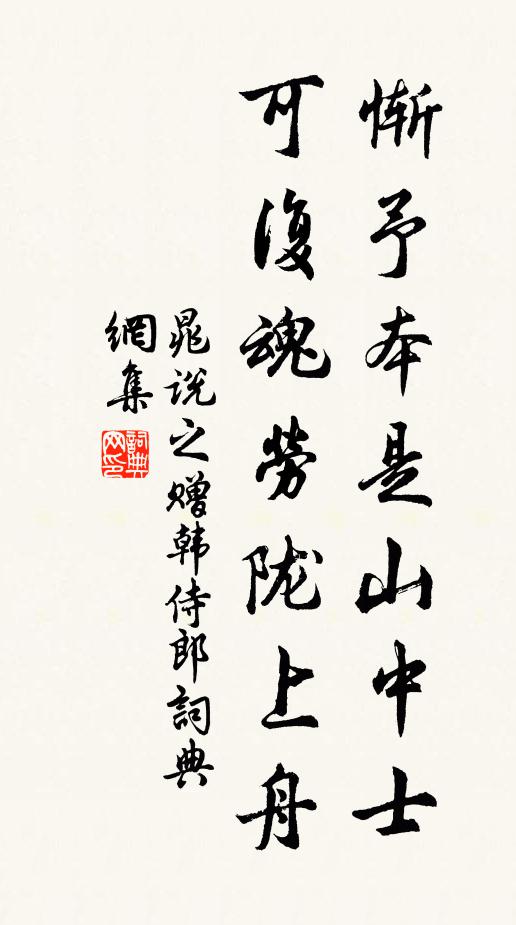 惭予本是山中士
可復魂勞陇上舟
晁说之赠韩侍郎詞典
網集
詞典
网印